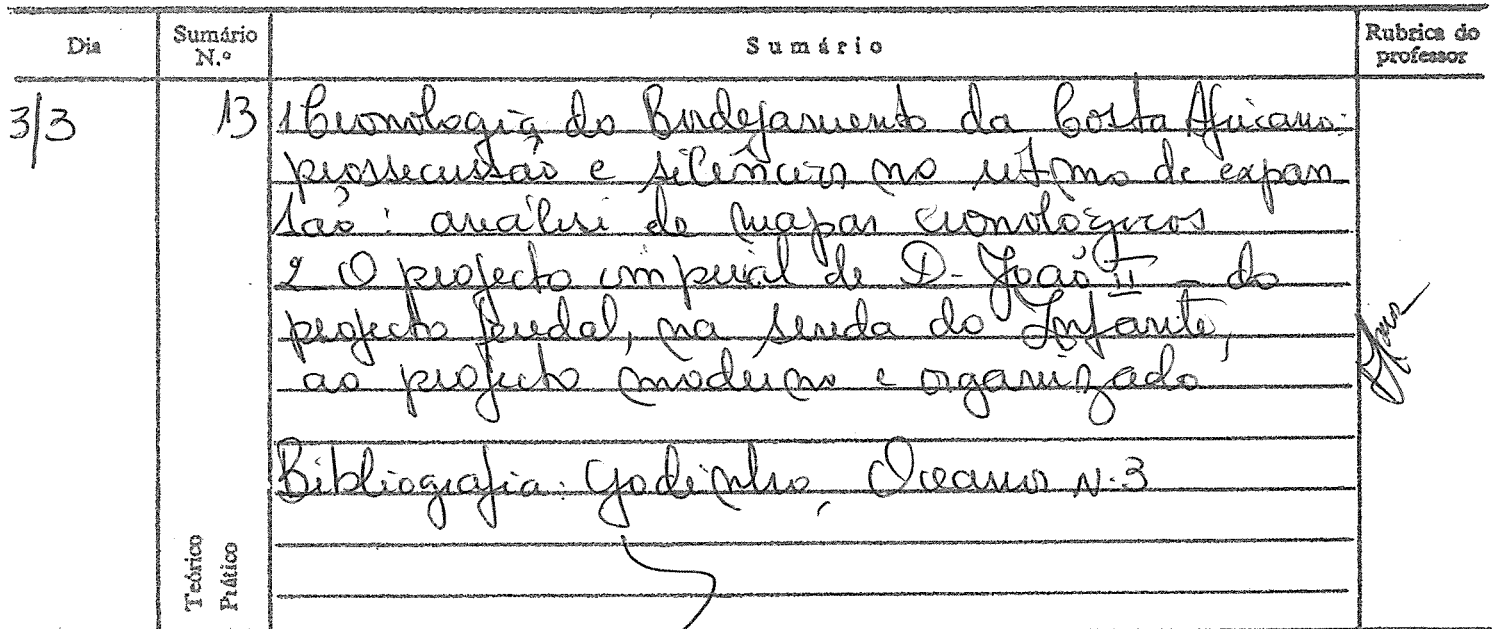 Dia Sumário N.º Sumário Rubrica do professor
3/3 13 1 Cronologia do Bordejamento da Costa Africana:
prossecussão e silêncios no ritmo de expan
são: análise de mapas cronológicos
2 O projecto imperial de D. João II - do
projecto feudal, na senda do Infante,
ao projecto moderno e organizado
Bibliografia: Godinho, Oceanos N.3
Teórico
Prático